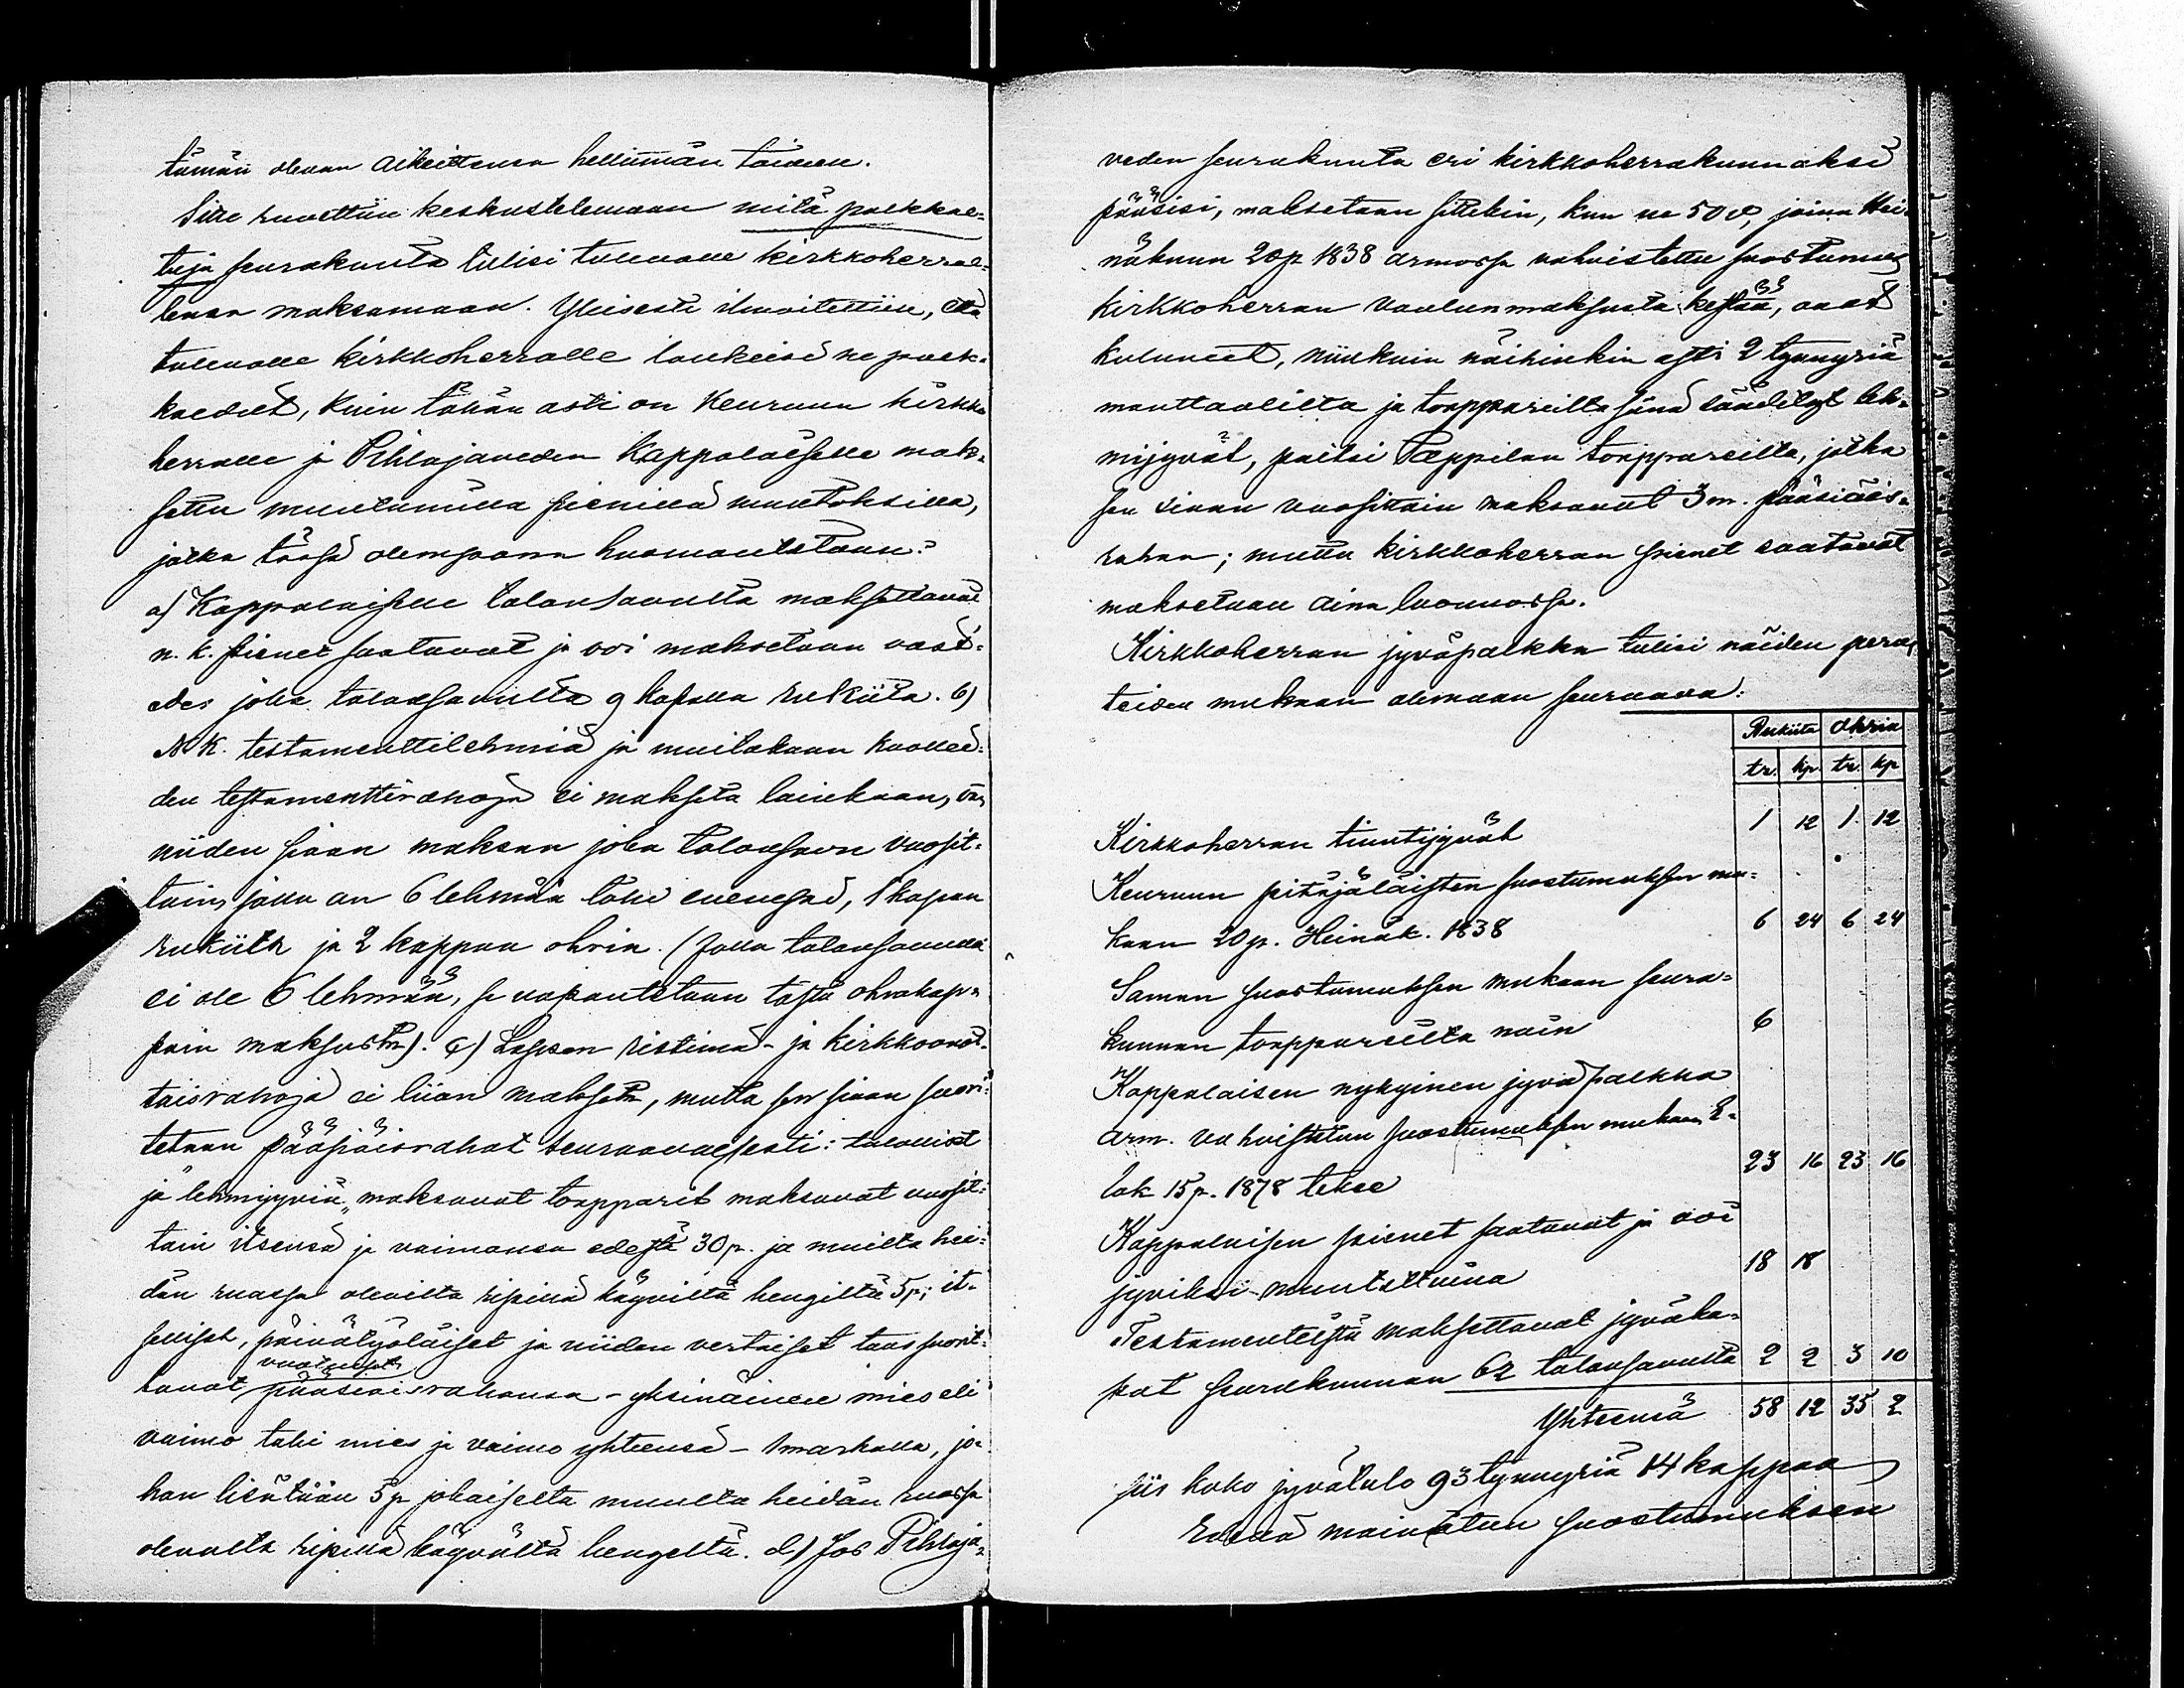 tämän olevan aikeittensa hellimmän toiveen.
Sitte ruvettiin keskustelemaan mitä palkkae-
tuja seurakunta tulisi tulevalle kirkkoherral-
lensa maksamaan. Yleisesti ilmoitettiin, että
tulevalle kirkkoherralle taukeisi ne palk-
kaedut, kuin tähän asti on Keuruun kirkko
herralle ja Pihlajaveden Kappalaiselle mak-
settu muutamilla pienillä muutoksilla,
jotka tässä alempana huomautetaan:
a) Kappalaiselle talonsavulta maksettavat
n. k. pienet saatavat ja voi maksetaan vast-
edes joka talonsavulta 9 kapalla rukiita. b)
N. K. testamenttilehmiä ja muitakaan kuollei-
den testamenttirahoja ei makseta lainkaan, vaan
niiden siaan maksaa joka talonsavu vuosit-
tain, jolla on 6 lehmää tahi enempi, 1 kapan
rukiita ja 2 kappaa ohria. (Jolla talonsavulla
ei ole 6 lehmää, se vapautetaan tästä ohrakap-
pain maksusta). c) Lapsen ristimä- ja kirkkoonot-
taisrahoja ei liioin makseta, mutta sen siaan suori-
tetaan pääsiäisrahat seuraavasesti: talolliset
ja "lehmijyviä" maksavat torpparit maksavat vuosit-
tain itsensä ja vaimonsa edestä 30 p. ja muilta hei-
dän ruassa olevilta ripillä käyviltä hengiltä 5 p; it-
selliset, päivätyöläiset ja niiden vertaiset taas suorit-
vuotuiset
tavat pääsiäisrahansa - yksinäinen mies eli
vaimo tahi mies ja vaimo yhteensä - 1 markalla, jo-
hon lisätään 5 p jokaiselta muulta heidän ruassa
olevalta ripillä käyvältä hengeltä. d) Jos Pihlaja-
veden seurakunta eri kirkkoherrakunnaksi
pääsisi, maksetaan sittekin, kun ne 50 v, joina Hei-
näkuun 20 p 1838 armossa vahvistettu suostumus
kirkkoherran vaalunmaksusta kestää, ovat
kuluneet, niinkuin näihinkin asti 2 tynnyriä
manttaalilta ja torppareilta siinä säädetyt leh-
mijyvät, paitsi Pappilan torppareilta, jotka
sen sivan vuosittain maksavat 3 m. pääsiäis-
rahaa; mutta kirkkoherran pienet saatavat
maksetaan aina luonnossa.
Kirkkoherran jyväpalkka tulisi näiden perus-
teiden mukaan olemaan seuraava:
Rukiita Ohria
tr. kp tr. kp
Kirkkoherran tiuntijyvät 1 12 1 12
Keuruun pitäjäläisten suostumuksen mu-
kaan 20 p. Heinäk. 1838 6 24 6 24
Saman suostumuksen mukaan seura-
kunnan torppareilta noin 6
Kappalaisen nykyinen jyväpalkka
arm. vahvistetun suostumuksen mukaan
lok 15 p. 1878 tekee 23 16 23 16
Kappalaisen pienet saatavat ja voi
jyviksi muutettuina 18 18
Testamenteistä maksettavat jyväka-
pat seurakunnan 62 talonsavusta 2 2 3 10
Yhteensä 58 12 35 2
siis koko jyvätulo 93 tynnyriä 14 kappaa
Edellä mainitun suostumuksen